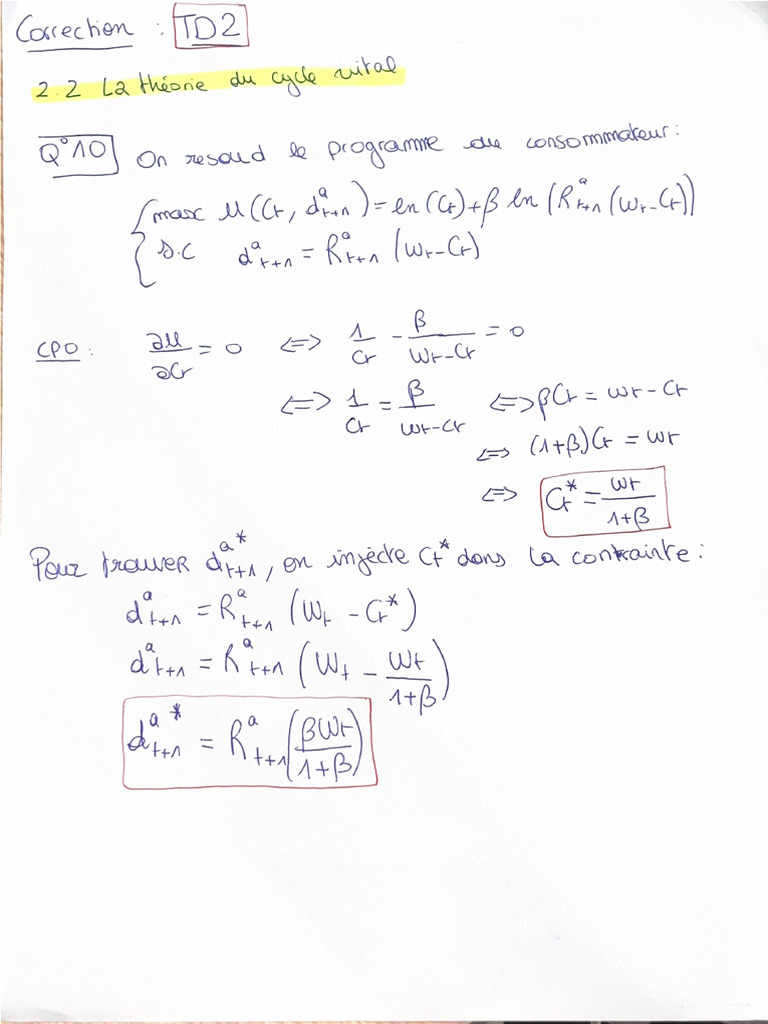 Correction : TD2
2.2 La théorie du cycle vital
Q°10 On resoud le programme du consommateur :
max U(Ct, d^a_t+1) = ln(Ct) + β ln (R^a_t+1 (Wt - Ct))
s.c d^a_t+1 = R^a_t+1 (Wt - Ct)
CPO : ∂U/∂Ct = 0 <=> 1/Ct - β/(Wt - Ct) = 0
<=> 1/Ct = β/(Wt - Ct) <=> βCt = Wt - Ct
<=> (1+β)Ct = Wt
<=> Ct* = Wt/(1+β)
Pour trouver d^a*_t+1, on injecte Ct* dans la contrainte :
d^a_t+1 = R^a_t+1 (Wt - Ct*)
d^a_t+1 = R^a_t+1 (Wt - Wt/(1+β))
d^a*_t+1 = R^a_t+1 (βWt/(1+β))